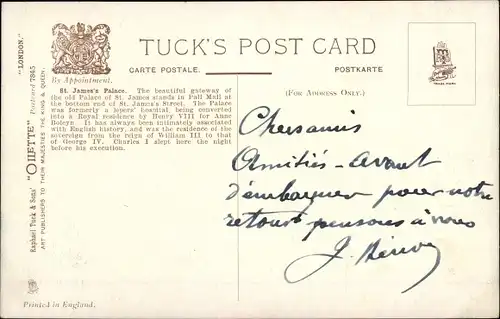 TUCK'S POST CARD
CARTE POSTALE. POSTKARTE
By Appointment.
(FOR ADDRESS ONLY.)
St. James's Palace. The beautiful gateway of
the old Palace of St. James stands in Pall Mall at
the bottom end of St. James's Street. The Palace
was formerly a lepers' hospital, being converted
into a Royal residence by Henry VIII for Anne
Boleyn. It has always been intimately associated
with English history, and was the residence of the
sovereign from the reign of William III to that
of George IV. Charles I slept here the night
before his execution.
"LONDON."
"OILETTE" Postcard 7845
Raphael Tuck & Sons'
ART PUBLISHERS TO THEIR MAJESTIES THE KING & QUEEN.
TRADE MARK
Chers amis
Amitiés - avant
d'embarquer pour notre
retour pensons à vous
J.
Printed in England.